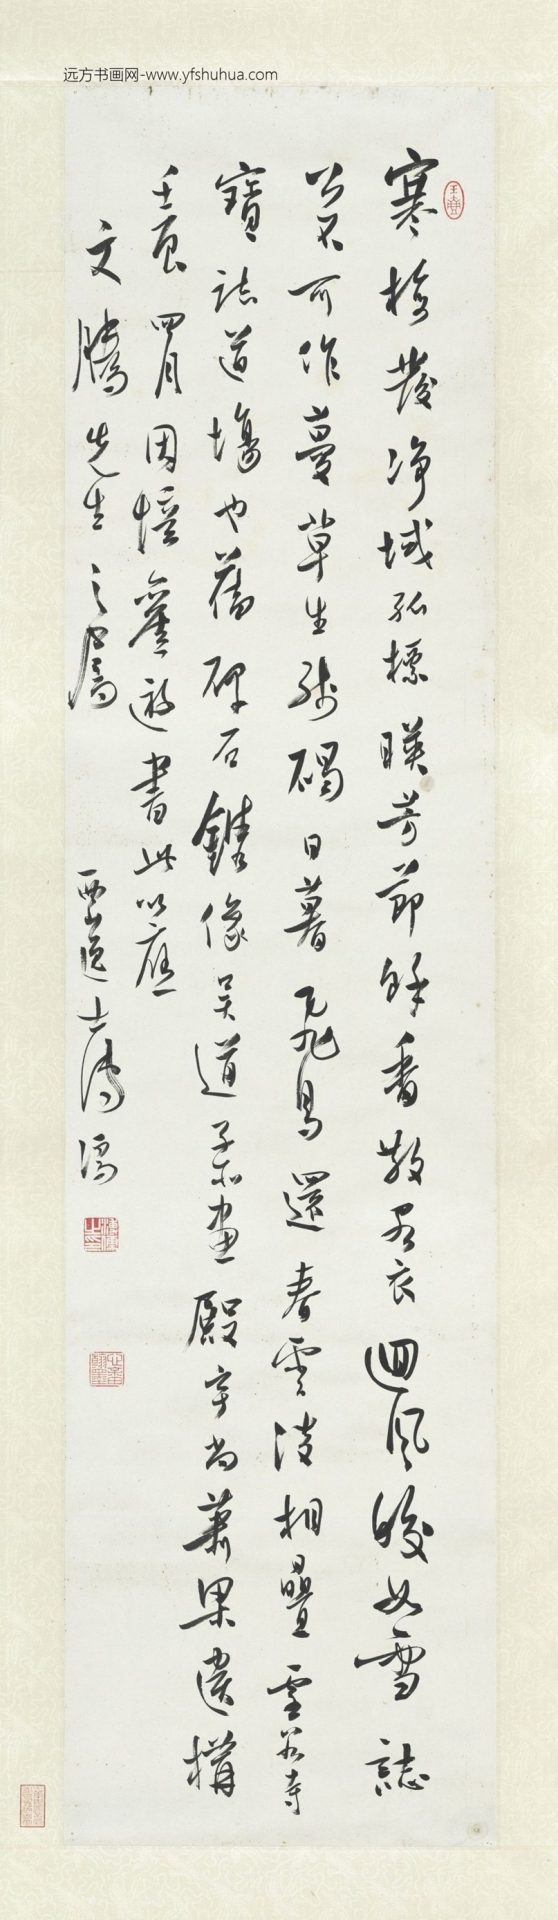 远方书画网-www.yfshuhua.com
寒梅發淨域孤標暎芳節餘香散君衣迴風皎如雪誌
公不可作蔓草生殘碣日暮飛鳥還春雲淡相疊靈谷寺
寶誌道場也舊碑石鐫像吴道子畫殿宇尚蕭梁遺構
壬辰四月因憶舊遊書此以應
文騰先生之屬
西山逸士溥儒